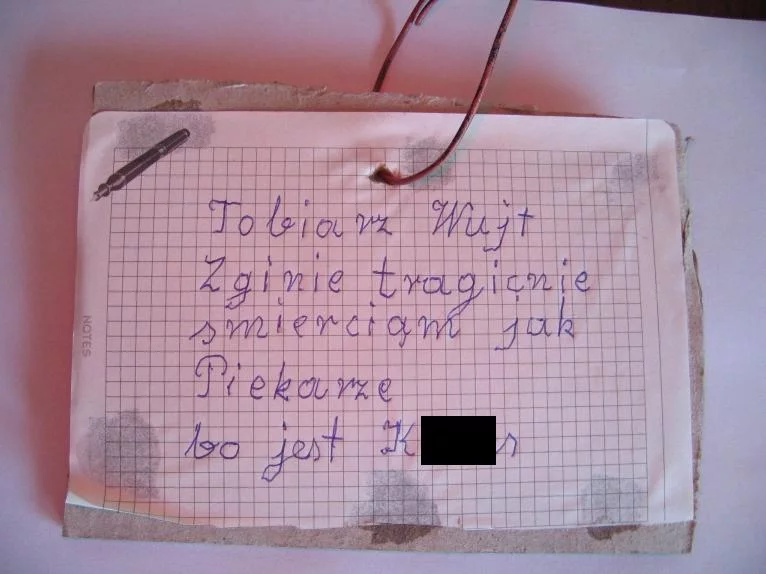 Tobiarz Wujt
Zginie tragicnie
smierciąm jak
Piekarze
bo jest K
NOTES